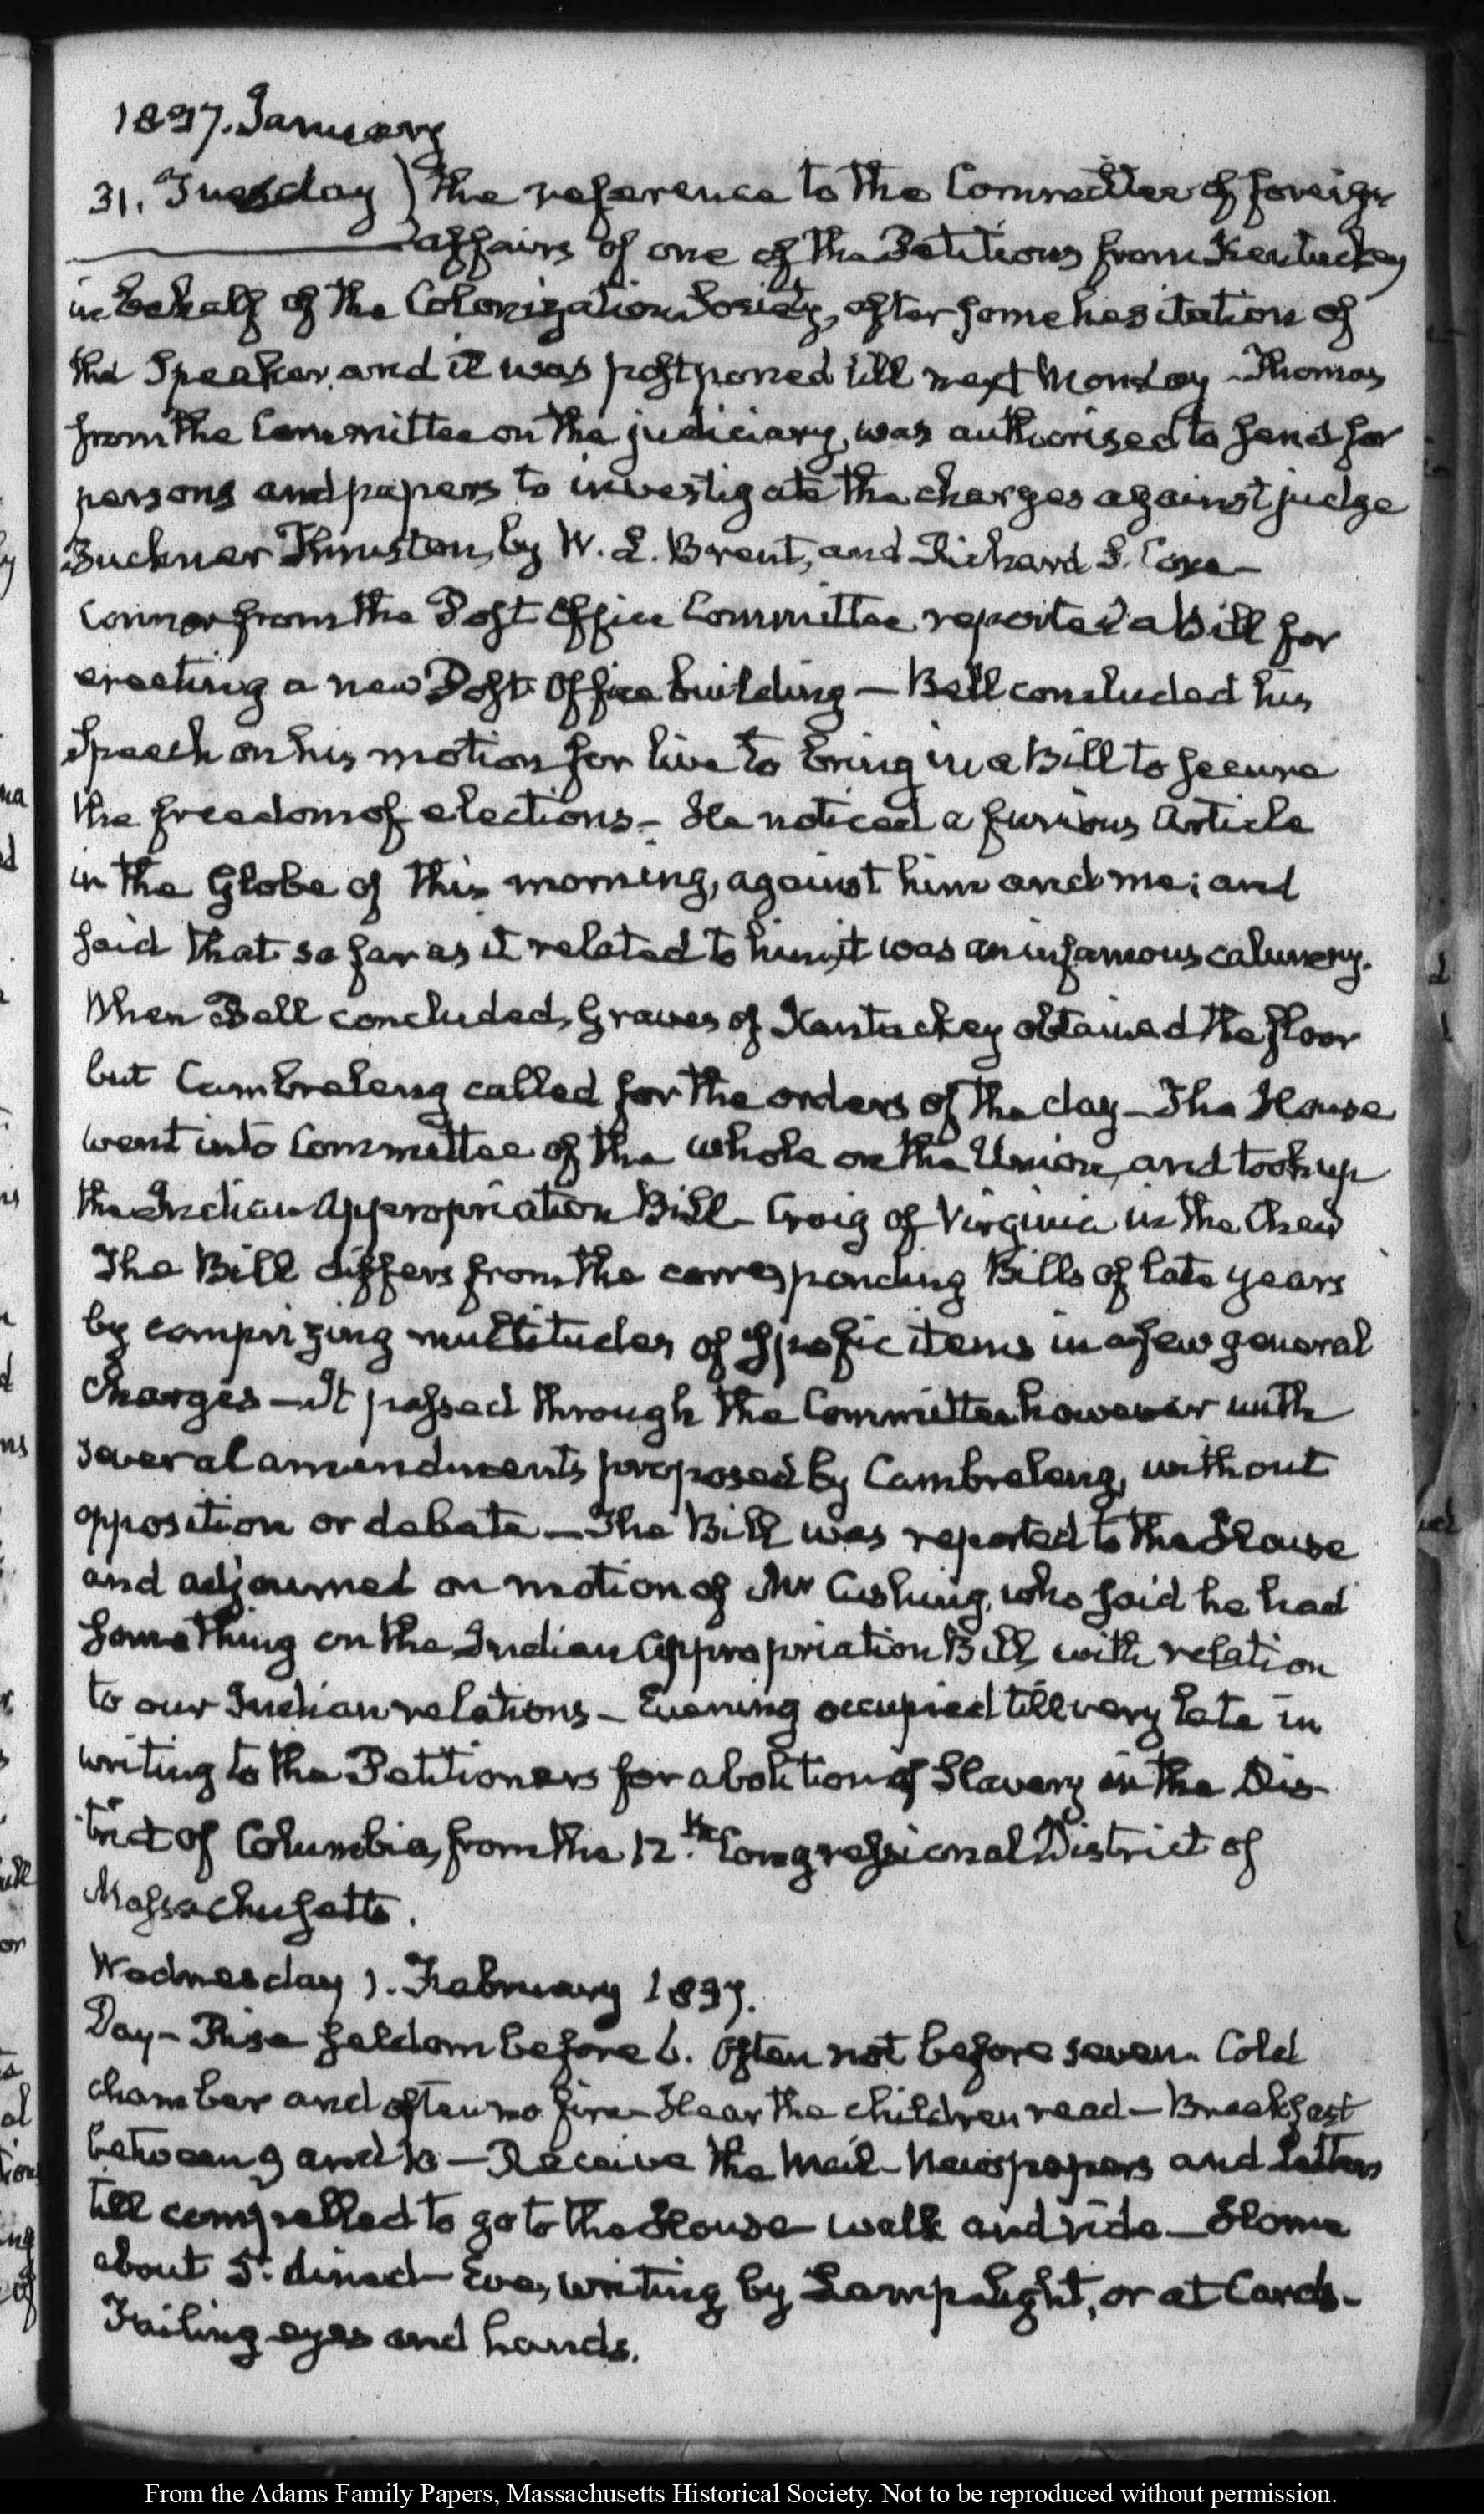 1837. January
31. Tuesday) the reference to the Committee of foreign
affairs of one of the Petitions from Kentucky
in behalf of the Colonization Society, after some hesitation of
the Speaker, and it was postponed till next Monday – Thomas
from the Committee on the judiciary, was authorised to send for
persons and papers to investigate the charges against judge
Buckner Thruston, by W. L. Brent, and Richard S. Coxe –
Connor from the Post Office Committee reported a Bill for
erecting a new Post Office building – Bell concluded his
Speech on his motion for live to bring in a Bill to secure
the freedom of elections – He noticed a furious Article
in the Globe of this morning, against him and me; and
said that so far as it related to him, it was an infamous calumny.
When Bell concluded, Graves of Kentucky obtained the floor
but Cambreleng called for the orders of the day – The House
went into Committee of the whole on the Union, and took up
the Indian Appropriation Bill – Craig of Virginia in the Chair
The Bill differs from the corresponding Bills of late years
by comprizing multitudes of specific items in a few general
charges – It passed through the Committee however with
several amendments proposed by Cambreleng, without
opposition or debate – The Bill was reported to the House
and adjourned on motion of Mr Cushing, who said he had
something on the Indian Appropriation Bill, with relation
to our Indian relations – Evening occupied till very late in
writing to the Petitioners for abolition of Slavery in the Dis-
trict of Columbia, from the 12.th Congressional District of
Massachusetts.
Wednesday 1. February 1837.
Day – Rise seldom before 6. Often not before seven. Cold
chamber and often no fire – Hear the children read – Breakfast
between 9 and 10 – Receive the Mail – Newspapers and Letters
till compelled to go to the House – walk and ride – Home
about 5. dined – Eve, writing by Lamp-light, or at Cards –
Failing eyes and hands.
From the Adams Family Papers, Massachusetts Historical Society. Not to be reproduced without permission.